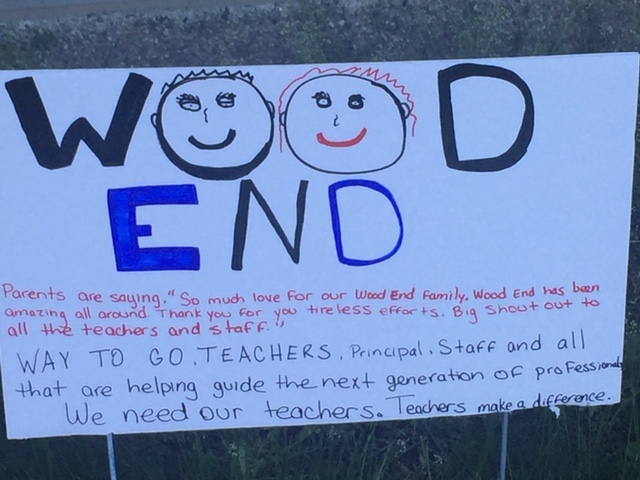 WOOD
END
Parents are saying, "So much love for our Wood End Family. Wood End has been
amazing all around. Thank you for you tireless efforts. Big shout out to
all the teachers and staff."
WAY TO GO, TEACHERS, Principal, Staff and all
that are helping guide the next generation of professionals
We need our teachers. Teachers make a difference.